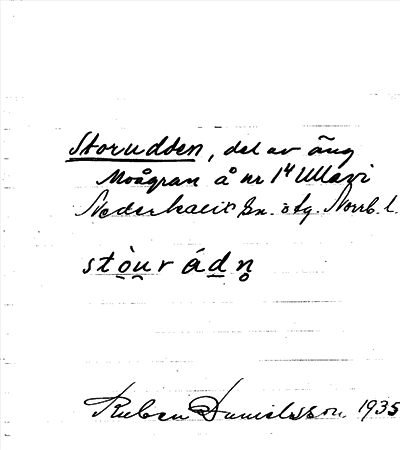 Storudden, del av äng
Moågran å nr 1⁴ Ullavi
Nederkalix sn. Norrb. l.
stòu̯r ádn̥
Ruben Danielsson 1935